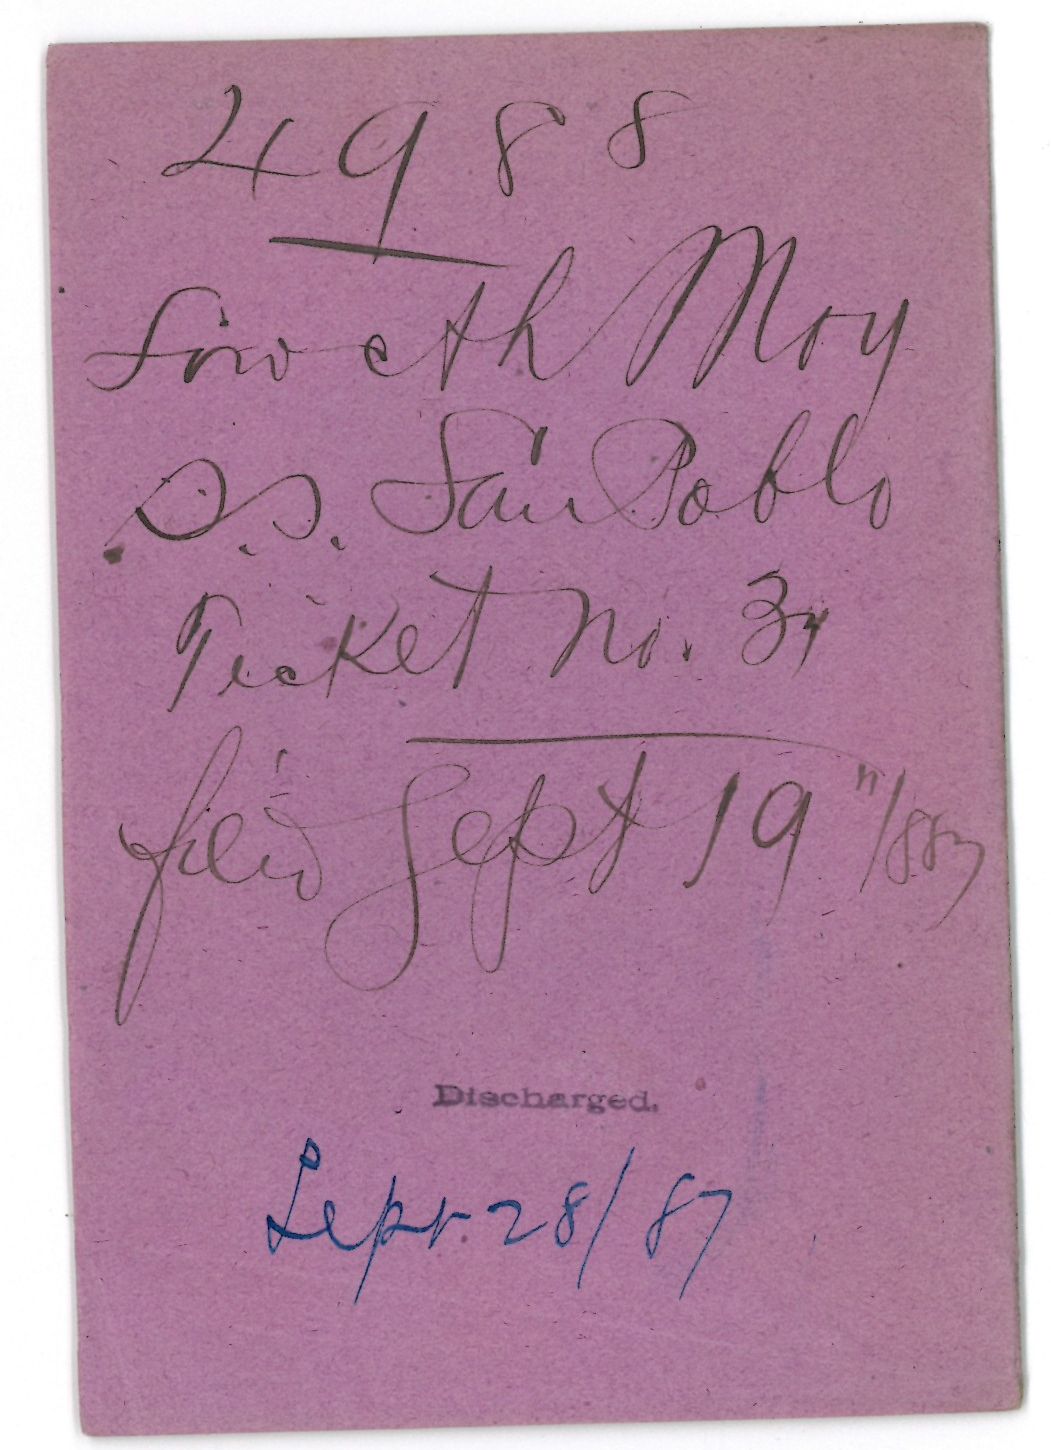 4988
Sow eth Moy
S.S. San Pablo
Ticket No. 34
fil'd Sept 19"/887
Discharged.
Sept 28/87